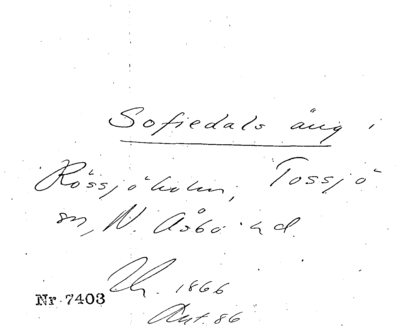 Sofiedals äng i
Rössjöholm, Tossjö
sn, N. Åsbo hd.
1866
Nr 7403
Ant. 86